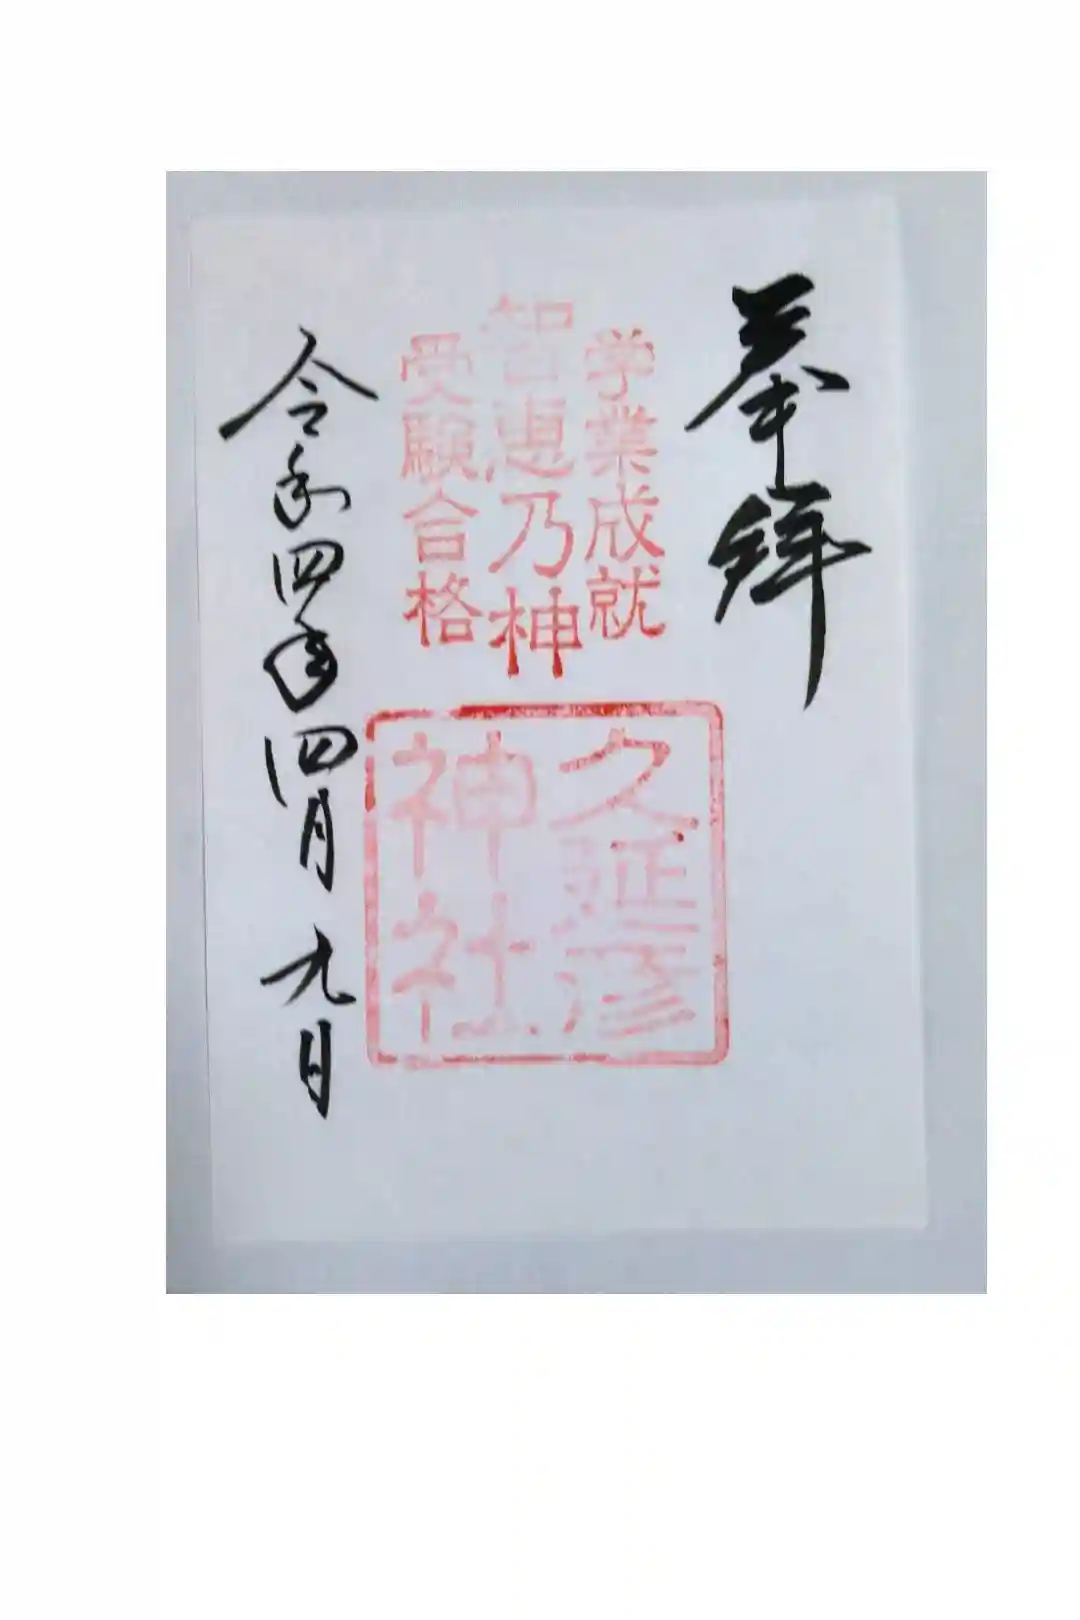 奉拝
学業成就
智恵乃神
受験合格
久延彦
神社
令和四年四月九日